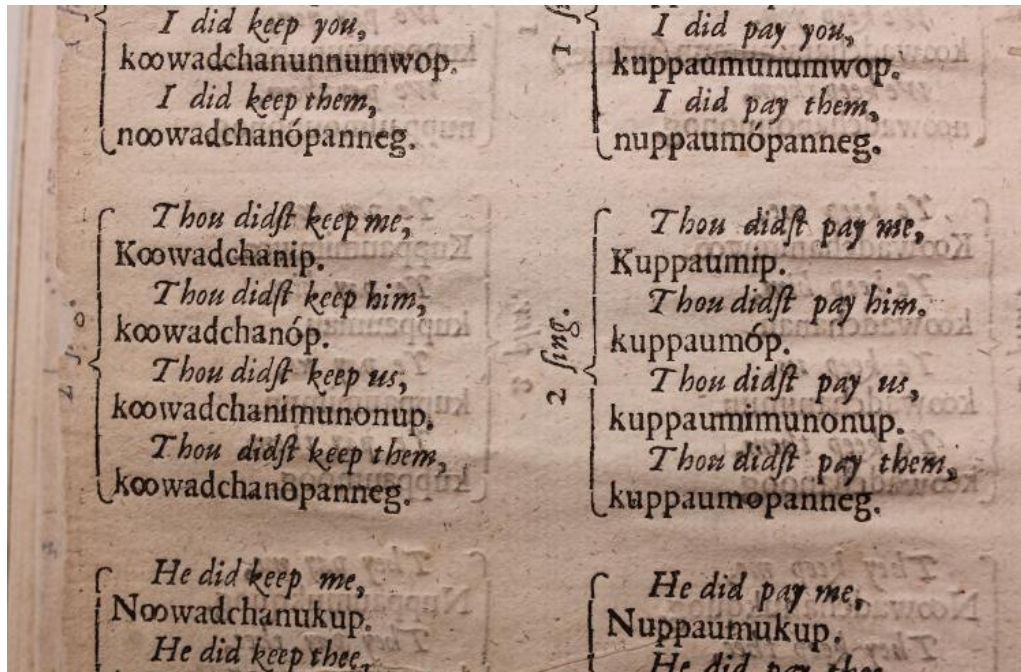 I did keep you,
kꝏwadchanunnumwop.
I did keep them,
nꝏwadchanópanneg.
Thou didſt keep me,
Kꝏwadchanip.
Thou didſt keep him,
kꝏwadchanóp.
Thou didſt keep us,
kꝏwadchanimunonup.
Thou didſt keep them,
kꝏwadchanópanneg.
He did keep me,
Nꝏwadchanukup.
He did keep thee,
1
I did pay you,
kuppaumunumwop.
I did pay them,
nuppaumópanneg.
2 ſing.
Thou didſt pay me,
Kuppaumip.
Thou didſt pay him.
kuppaumóp.
Thou didſt pay us,
kuppaumimunonup.
Thou didſt pay them,
kuppaumopanneg.
He did pay me,
Nuppaumukup.
He did pay thee